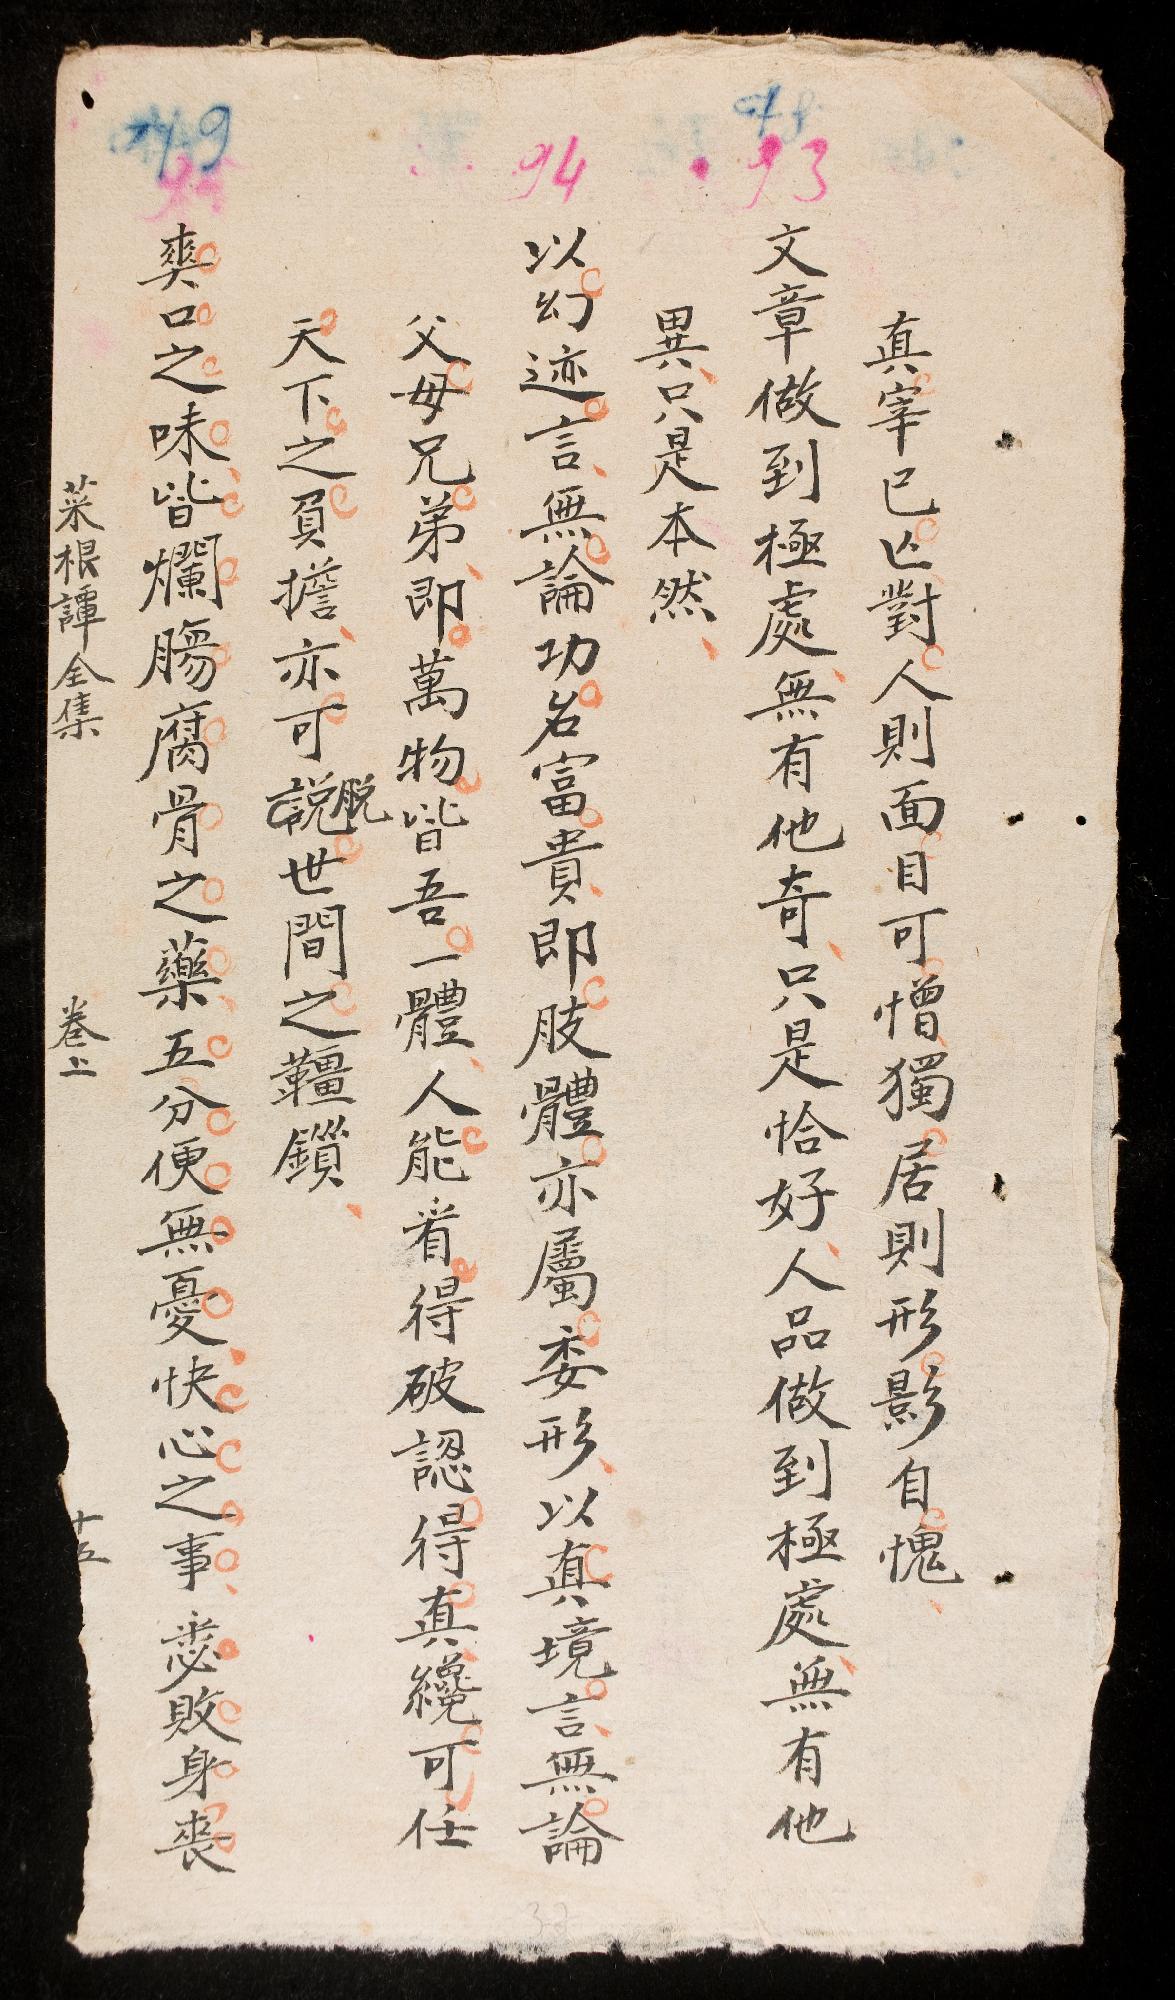 真宰已亾對人則面目可憎獨居則形影自愧
93
文章做到極處無有他奇只是恰好人品做到極處無有他
異只是本然
94
以幻迹言無論功名富貴即肢體亦屬委形以真境言無論
父母兄弟即萬物皆吾一體人能看得破認得真纔可任
天下之負擔亦可説脱世間之韁鎖
爽口之味皆爛腸腐骨之藥五分便無憂快心之事悉敗身喪
菜根譚全集
卷上
十五